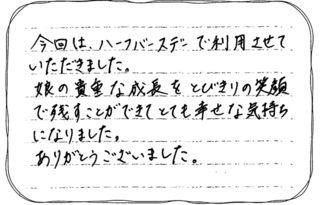 今回は、ハーフバースデーで利用させて
いただきました。
娘の貴重な成長をとびきりの笑顔
で残すことができてとても幸せな気持ち
になりました。
ありがとうございました。